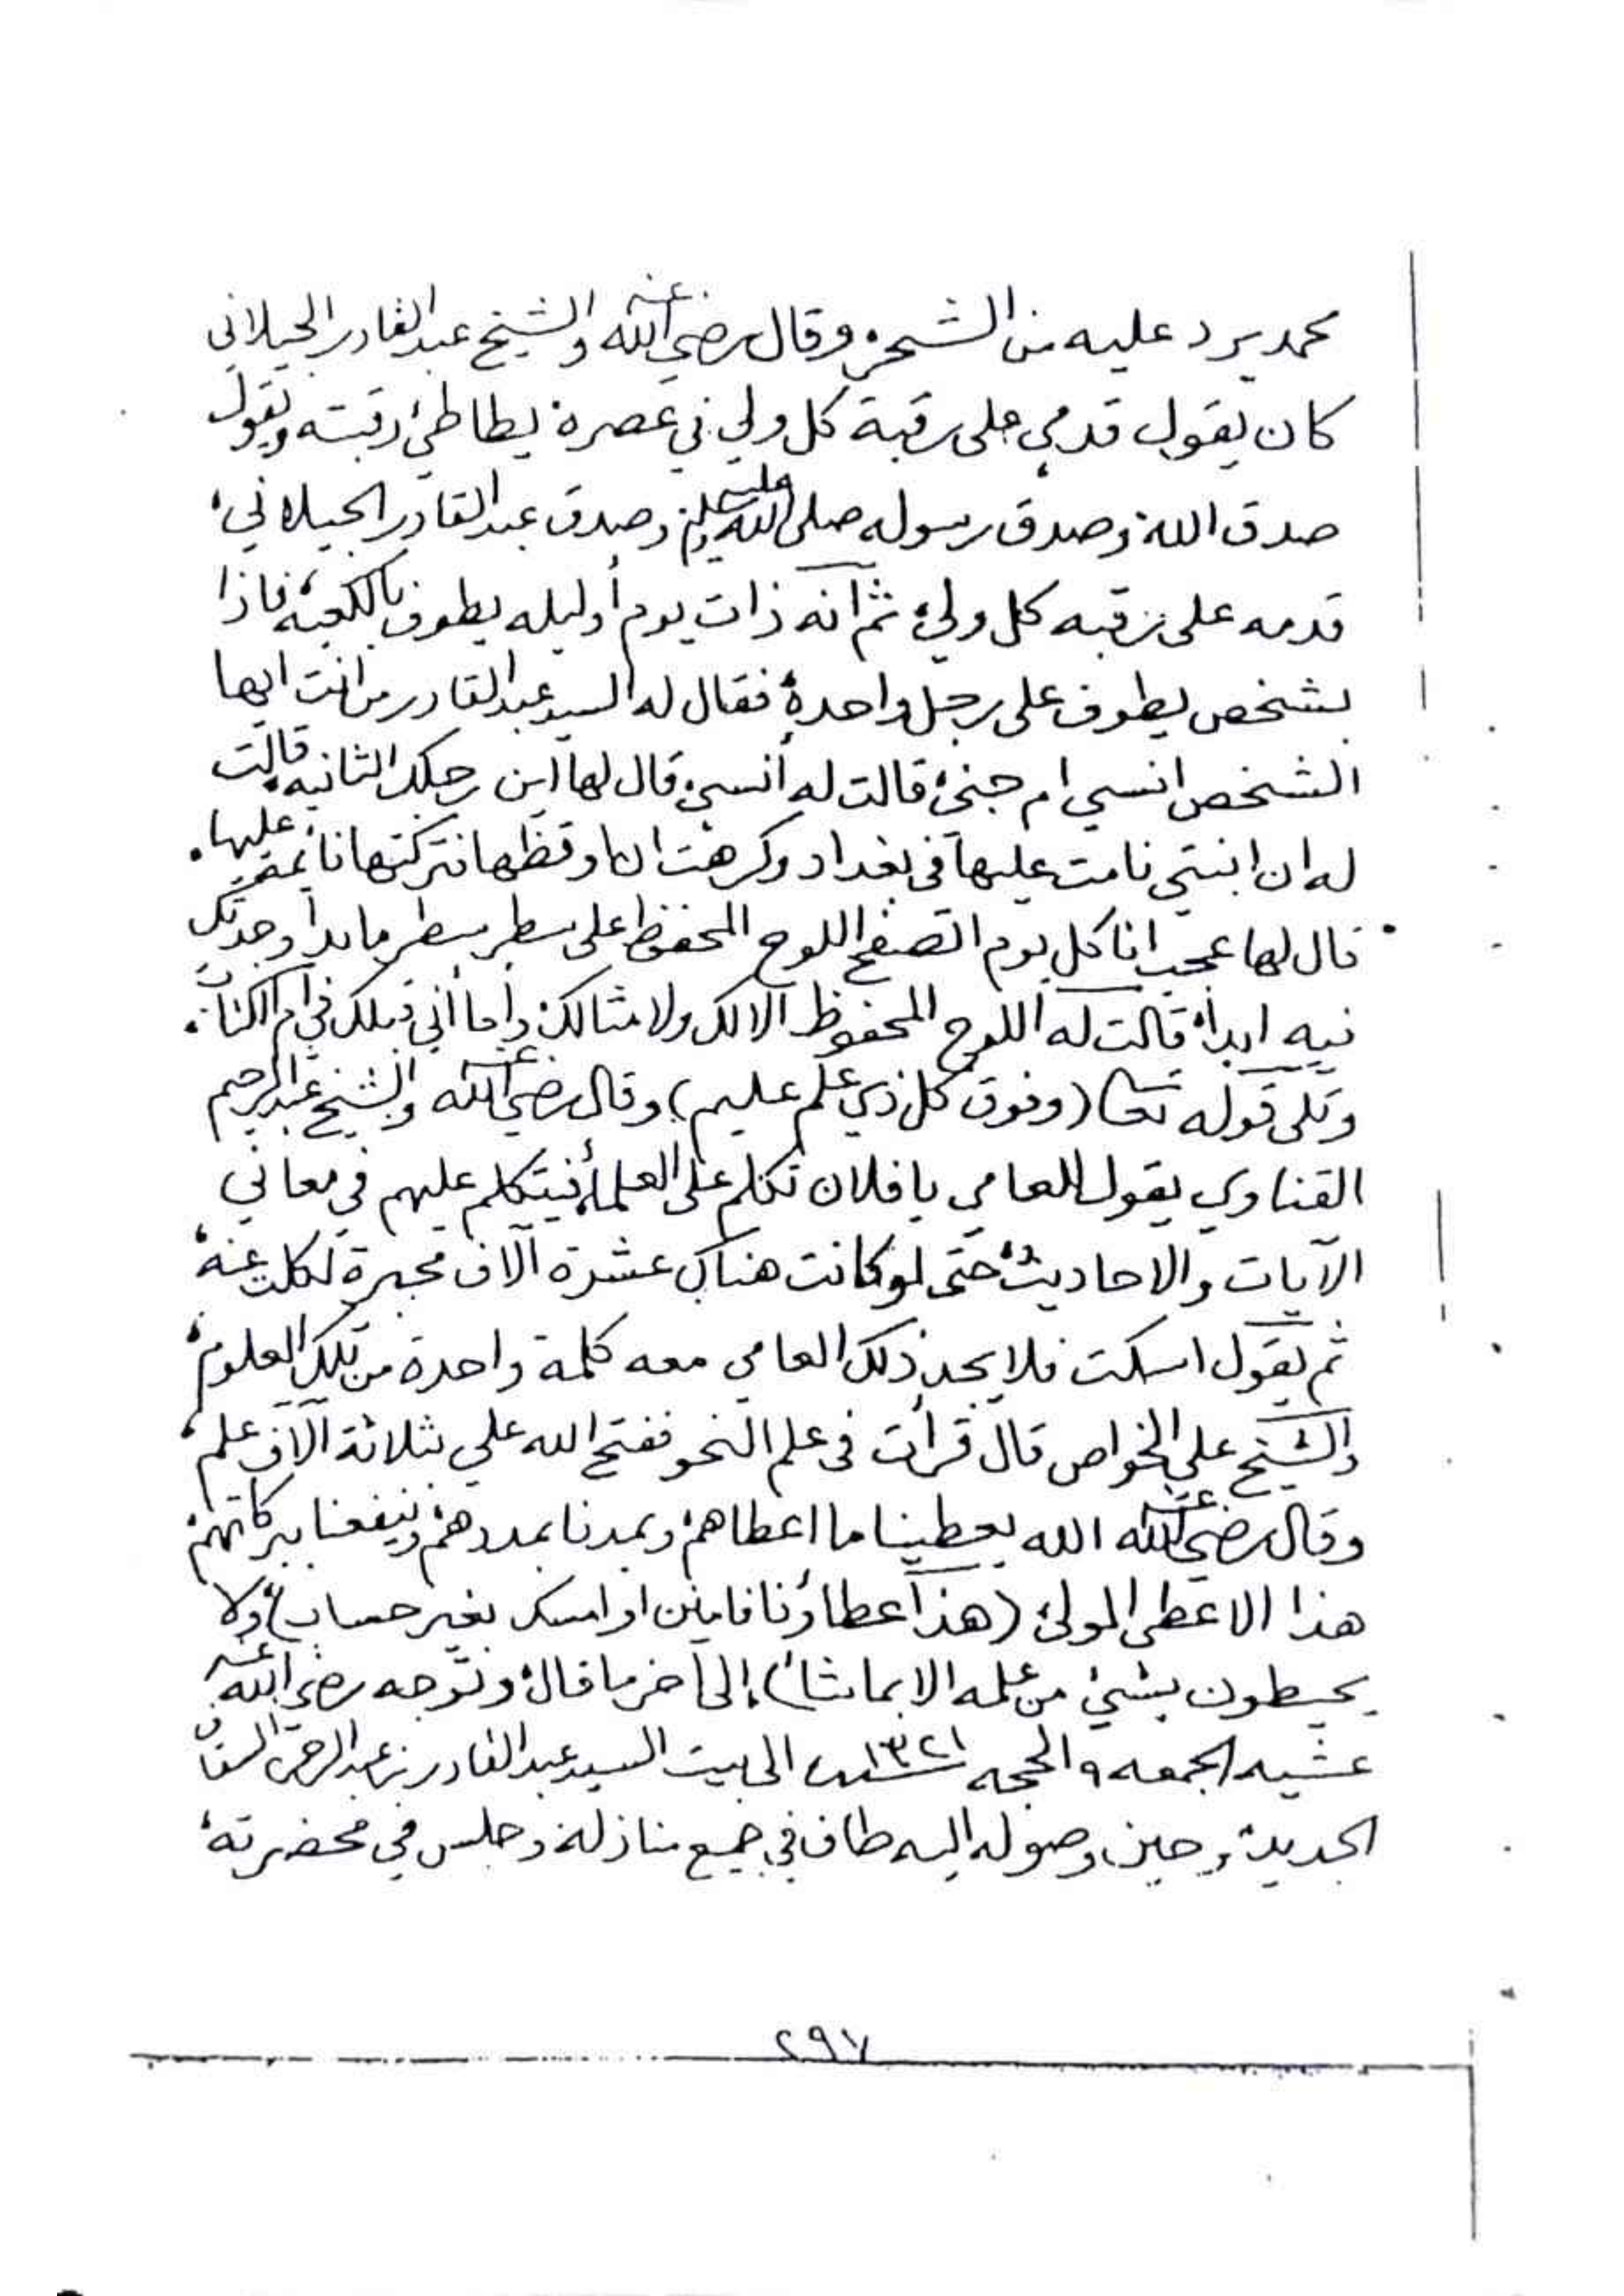 محمد يرد عليه من الشحر، وقال رضي الله عنه والشيخ عبدالقادر الجيلاني
كان يقول قدمي على رقبة كل ولي في عصره يطاطئ رقبته ويقول
صدق الله، وصدق رسوله صلى الله عليه وسلم، وصدق عبدالقادر الجيلاني،
قدمه على رقبه كل ولي، ثم انه ذات يوم أوليله يطوف بالكعبه، فاذا
بشخص يطوف على رجل واحدة، فقال له السيد عبدالقادر من انت ايها
الشخص انسي ام جني، قالت له أنسي، قال لها اين رجلك الثانيه، قالت
له ان ابنتي نامت عليها في بغداد وكرهت ان اوقظها فتركتها نائمة عليها.
قال لها عجب انا كل يوم اتصفح اللوح المحفوظ على سطر سطر ما بدا وجدتك
فيه ابدا، قالت له اللوح المحفوظ الا لك ولامثالك، وأما أني قبلك في ام الكتاب.
وتلى قوله تعا (وفوق كل ذي علم عليم)، وقال رضي الله عنه والشيخ عبدالرحيم
القناوي يقول للعامي يا فلان تكلم على العلماء، فيتكلم عليهم في معاني
الآيات والاحاديث، حتى لو كانت هناك عشرة آلاف محبرة لكلت عنه،
ثم يقول اسكت فلا يجد ذلك العامي معه كلمة واحدة من تلك العلوم،
والشيخ علي الخواص قال قرأت في علم النحو ففتح الله علي بثلاثة آلاف علم،
وقال رضي الله عنه الله يعطينا ما اعطاهم، ويمدنا بمددهم، وينفعنا ببركاتهم،
هذا الا عطى المولى، (هذا عطاؤنا فامنن او امسك بغير حساب)، (ولا
يحيطون بشيئ من علمه الا بما شاء)، إلى آخر ما قال، وتوجه رضي الله عنه
عشيه الجمعه ٩ الحجه سنة ١٣٢١ الى بيت السيد عبدالقادر بن عبدالرحمن السقاف
الجديد، وحين وصوله اليه طاف في جميع منازله، وجلس في محضرته،
٢٩٧